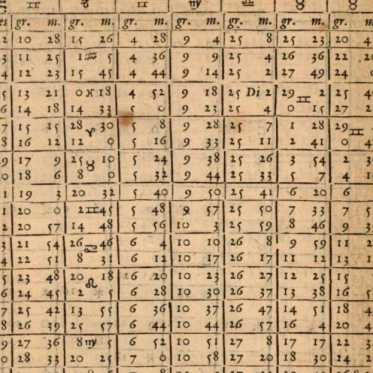 ♊ ♌ ♊ ♍ ♎ ♉ ♉
gr. m. gr. m. gr. m. gr. m. gr. m. gr. m. gr.
2 10 28 15 26 4 28 9 4 25 8 25 23 20
3 11 25 1 ♒ 5 4 36 9 9 25 4 26 36 22
4 12 23 15 45 4 44 9 14 25 2 27 49 24
5 13 21 0 ♓ 18 4 52 9 18 25 Di 2 29 2 25
6 14 18 14 33 5 0 9 23 25 4 0 ♊ 15 27
7 15 15 28 30 5 8 9 28 25 7 1 28 29
8 16 12 12 ♈ 0 5 16 9 33 25 11 2 41 0 ♊
9 17 9 25 10 5 24 9 38 25 26 3 54 2
0 18 6 8 ♉ 0 5 32 9 44 25 33 5 7 4
1 19 3 20 32 5 40 9 50 25 41 6 20 6
1 20 0 2 ♊ 45 5 48 9 57 25 50 7 33 7
2 20 57 14 48 5 56 10 3 25 59 8 46 9
3 21 54 26 46 6 4 10 10 26 8 9 59 11
4 22 51 8 31 6 12 10 17 26 17 11 12 13
5 23 48 20 18 6 20 10 23 26 27 12 25 15
6 24 45 2 5 6 28 10 30 26 37 13 38 16
7 25 42 13 55 6 36 10 37 26 47 14 51 18
8 26 39 25 57 6 44 10 44 26 57 16 4 20
9 27 36 8 ♍ 5 6 52 10 51 27 8 17 17 22
0 28 33 20 25 7 0 10 58 27 20 18 30 24